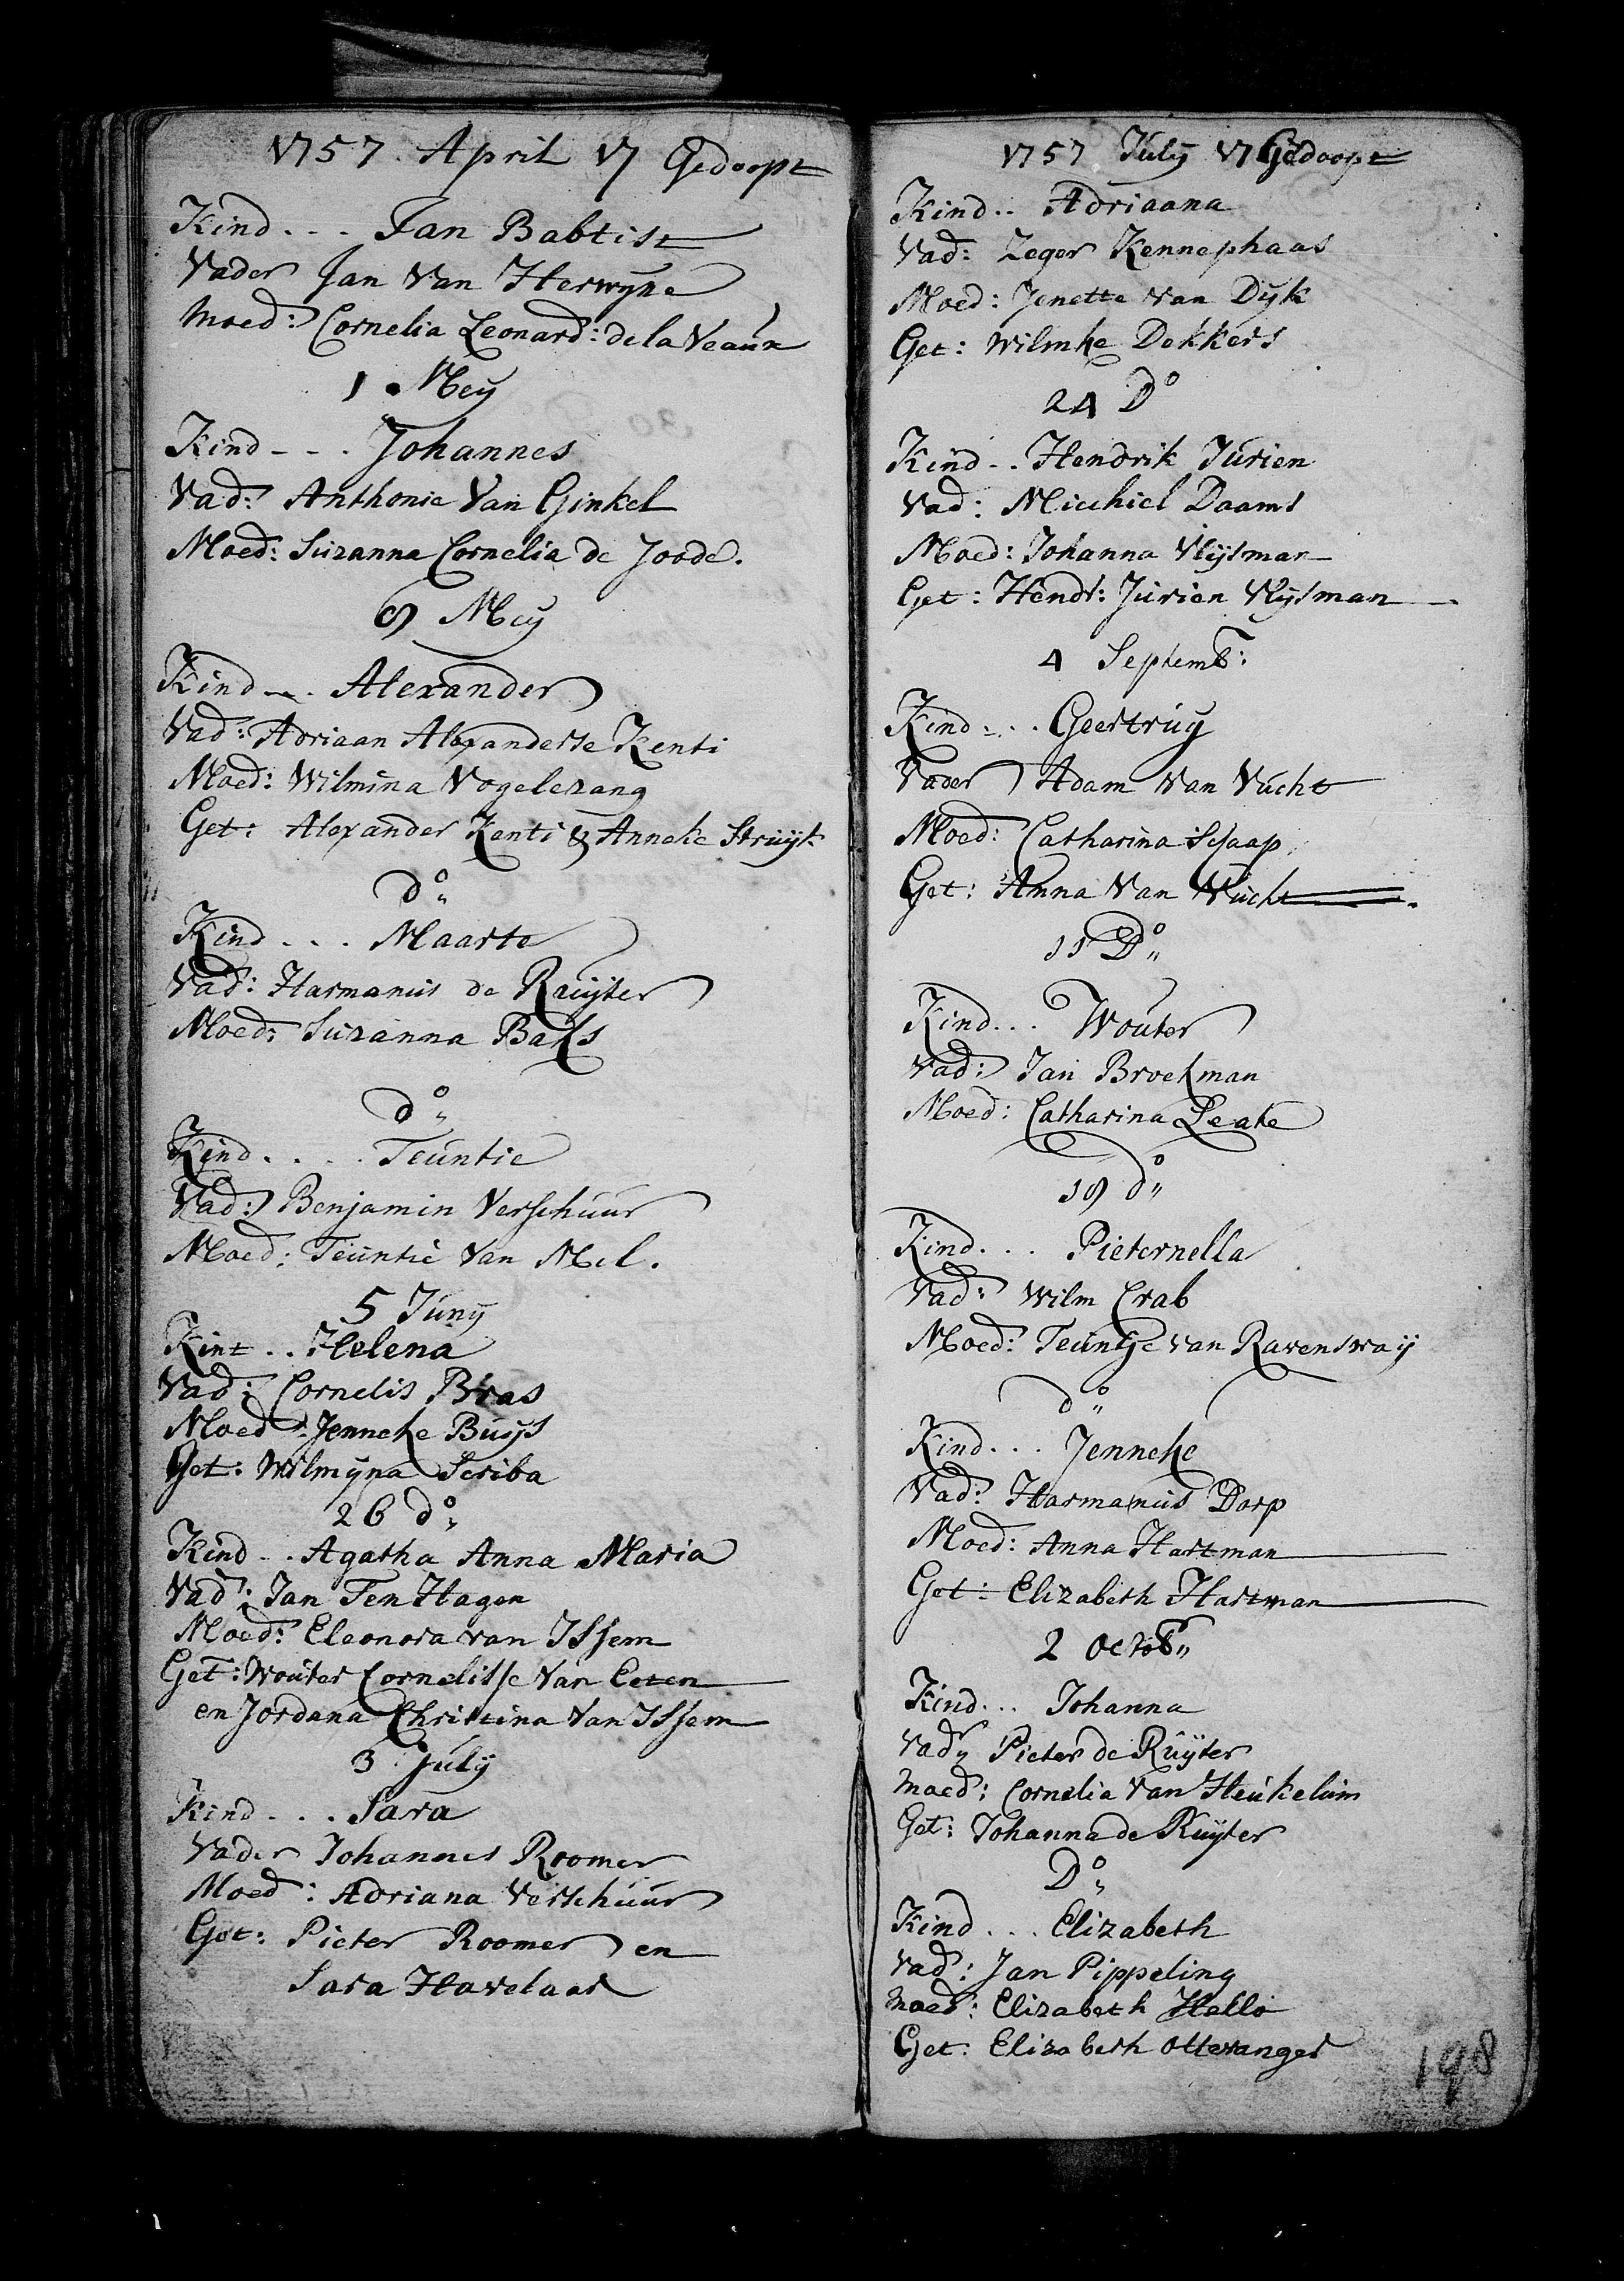 1757. April 17 Gedoopt
Kind . - - Jan Babtist
Vader Jan Van Herwyne
Moed: Cornelia Leonard: de la Veaux
1 . Mey
Kind - - . Johannes
Vad: Anthonie Van Ginkel
Moed: Suzanna Cornelia de Joode.
9 Mey
Kind - . Alexander
Vad: Adriaan Alexanderse Kenti
Moed: Wilmina Vogelezang
Get: Alexander Kenti & Anneke Struyk
do
Kind . . . Maarte
Vad: Harmanus de Ruyter
Moed: Suzanna Baks
do
Kind . . . . Teuntie
Vad: Benjamin Verschuur
Moed: Teuntie Van Mel.
5 Juny
Kint . . Helena
Vad: Cornelis Bras
Moed: Jenneke Buys
Get: Wilmyna Scriba
26 do
Kind - . Agatha Anna Maria
Vad: Jan Ten Hagen
Moed: Eleonora van IJssem
Get: Wouter Cornelisse Van Eeten
en Jordana Christina Van IJssem
3 July
Kind . . . Sara
Vader Johannes Roomer
Moed: Adriana Verschuur
Get: Pieter Roomer en
Sara Havelaar
1757 July 17 Gedoopt
Kind . . Adriaana
Vad: Zeger Kennephaas
Moed: Jenette van Dyk
Get: Wilmke Dekkers
24 Do
Kind . . Hendrik Jurien
Vad: Michiel Daams
Moed: Johanna Vlysman
Get: Hendr: Jurien Vlysman
4 Septemb:
Kind . . . Geertruy
Vader Adam Van Vucht
Moed: Catharina Schaap
Get: Anna Van Vucht
11 Do
Kind . . . Wouter
Vad: Jan Broekman
Moed: Catharina Leake
19 do
Kind . . . Pieternella
Vad: Wilm Crab
Moed: Teuntje van Ravenswaij
do
Kind . . . Jenneke
Vad: Harmanus Dorp
Moed: Anna Hartman
Get: Elizabeth Hartman
2 Octob
Kind . . . Johanna
Vad: Pieter de Ruyter
Moed: Cornelia Van Heukelum
Get: Johanna de Ruyter
Do
Kind . . . Elizabeth
Vad: Jan Pippeling
Moed: Elizabeth Hello
Get: Elizabeth Otteranger
198